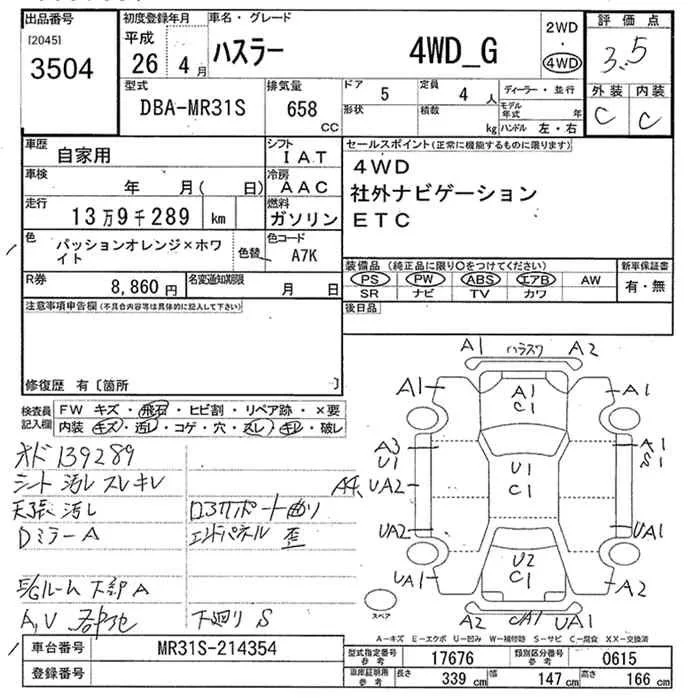 出品番号
[2045]
3504
初度登録年月
平成
26 4月
車名・グレード
ハスラー 4WD_G
2WD
・
4WD
評価点
3.5
外装 内装
C C
型式
DBA-MR31S
排気量
658
cc
ドア
5
形状
定員
4人
積数
kg
ディーラー・並行
モデル年式 年
ハンドル 左・右
車歴
自家用
シフト
IAT
車検
年 月( 日)
冷房
AAC
走行
13万9千289 km
燃料
ガソリン
色
パッションオレンジ×ホワイト
色替
色コード
A7K
R券
8,860円
名変通知期限
月 日
セールスポイント(正常に機能するものに限ります)
4WD
社外ナビゲーション
ETC
装備品 (純正品に限り○をつけてください)
PS PW ABS エアB AW
SR ナビ TV カワ
新車保証書
有・無
後日品
注意事項申告欄(不具合内容等は具体的に記入して下さい)
修復歴 有〔箇所 〕
検査員記入欄
FW キズ・飛石・ヒビ割・リペア跡・×要
内装 キズ・汚レ・コゲ・穴・スレ・キレ・破レ
オド 139289
シート 汚レ スレ キレ
天張 汚レ
Dミラー A
エンドパネル 歪
下廻り S
A1 ハラスワ A2
A1 A1 C1 A1
A3 U1 A1 S1
A4、UA2 U1 C1
UA2 UA1
UA1 U2 C1 UA1
スペア
A2 UA1
A-キズ E-エクボ U-凹み W-補修跡 S-サビ C-腐食 XX-交換済
車台番号
MR31S-214354
登録番号
型式指定番号 参考
17676
類別区分番号 参考
0615
車庫証明用 参考
長さ 339cm 幅 147cm 高さ 166cm